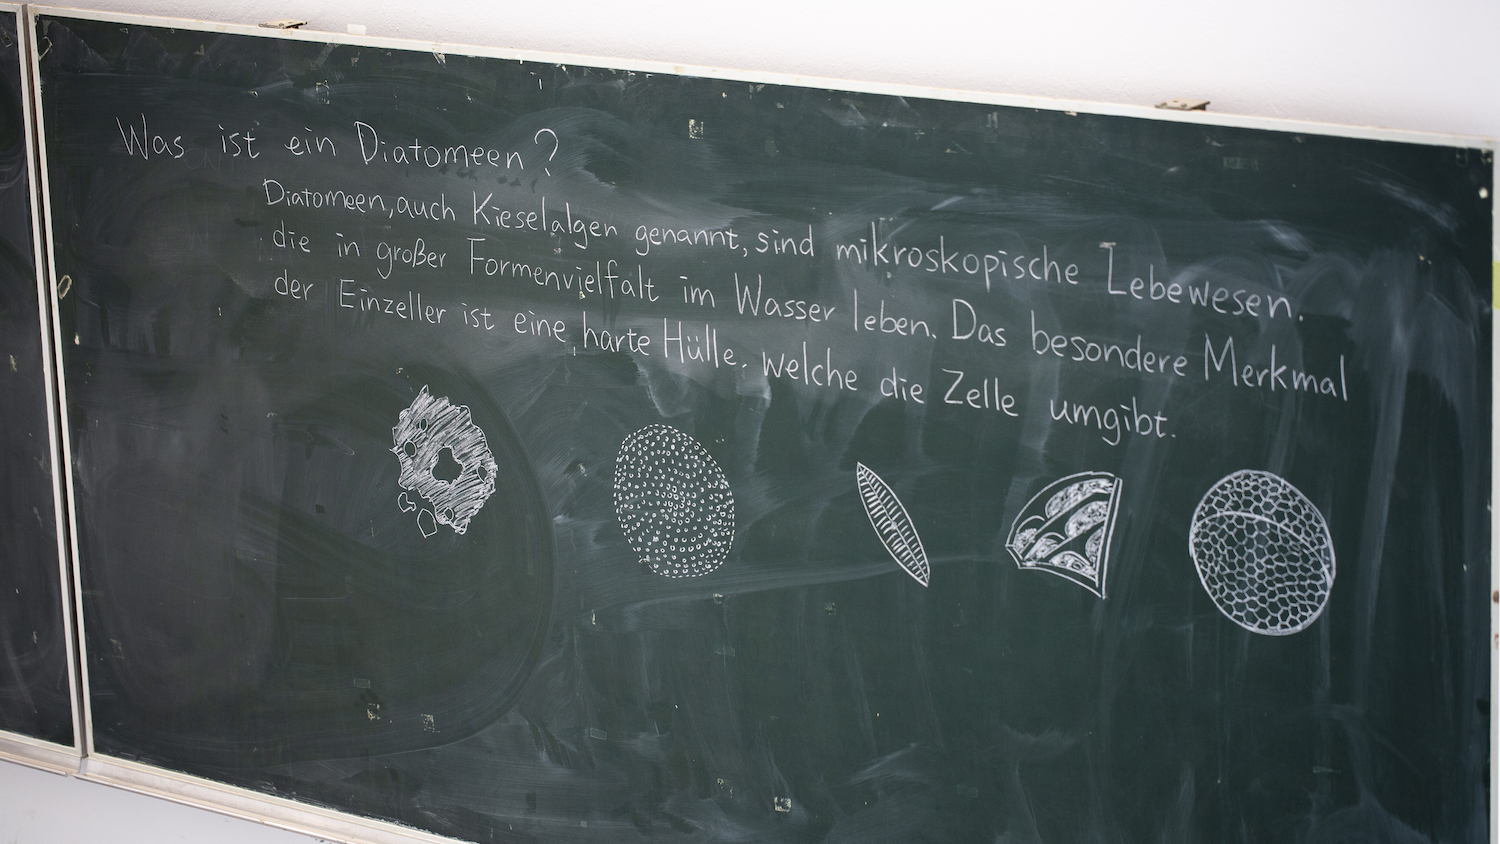 Was ist ein Diatomeen?
Diatomeen, auch Kieselalgen genannt, sind mikroskopische Lebewesen.
die in großer Formenvielfalt im Wasser leben. Das besondere Merkmal
der Einzeller ist eine harte Hülle. welche die Zelle umgibt.